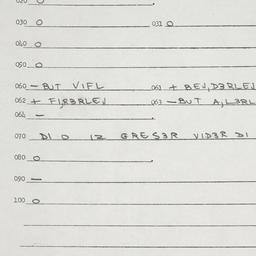 020 O
030 O 031 O
040 O
050 O
060 — BUT VIFL 061 + BEJ, D3RLEJ
062 + FIRBRLEJ 063 — BUT A, L3RL
064 —
070 DI O IZ GRES3R VID3R DI
080 O
090 —
100 O